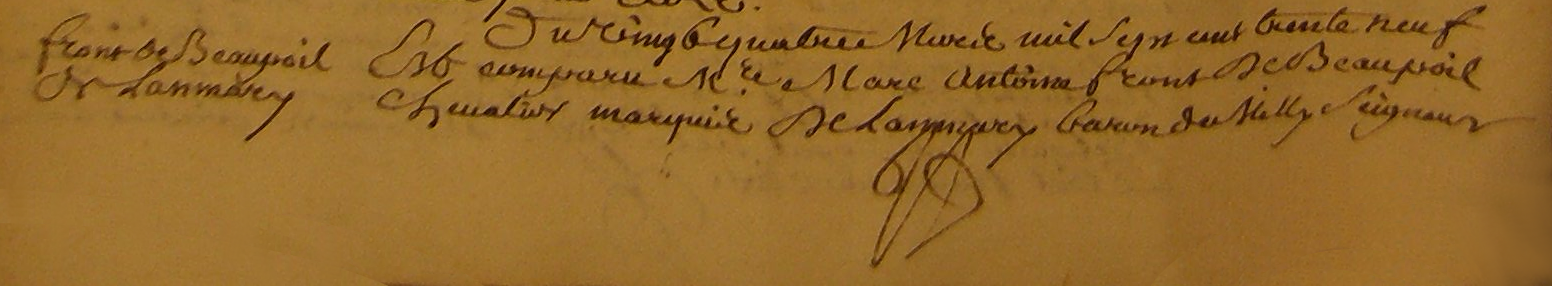 front de Beaupoil
De Lanmary
Du Vingt quatre Mars mil sept cent trente neuf
Est comparu M.re Marc Antoine front De Beaupoil
Chevalier marquis De Lanmary baron du Milly Seigneur